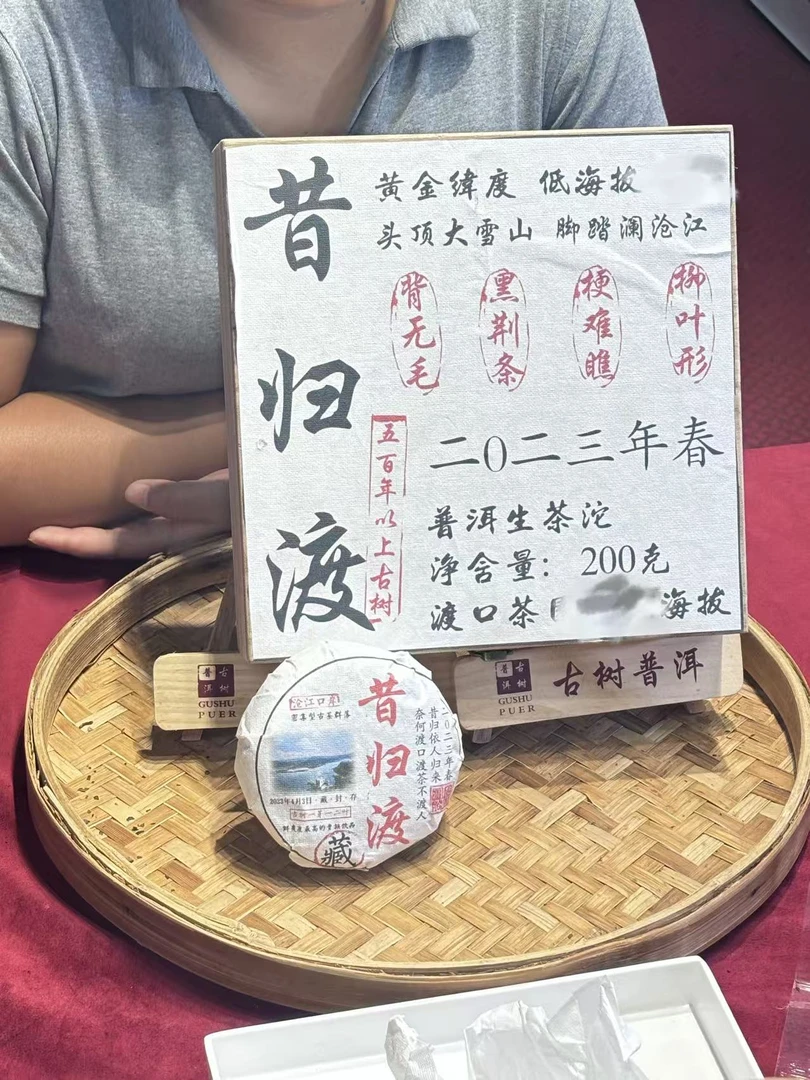 昔归渡
黄金纬度 低海拔
头顶大雪山 脚踏澜沧江
背无毛
黑荆条
梗难瞧
柳叶形
五百年以上古树
二〇二三年春
普洱生茶沱
净含量：200克
渡口茶
海拔
古树
普洱
GUSHU
PUER
古树
普洱
GUSHU
PUER
古树普洱
沧江口岸
密集型古茶群落
昔归渡
二〇二三年春
昔归依人归来
奈何渡口渡茶不渡人
2023年4月3日·藏·封·存
古树一芽一二叶
藏